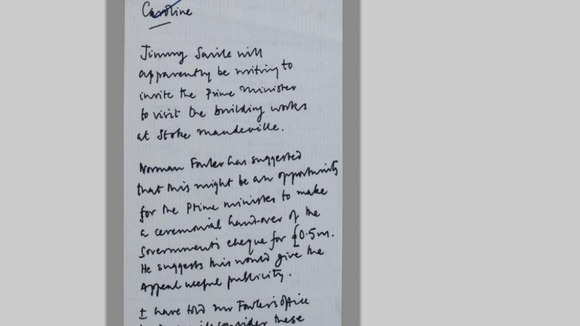 Caroline
Jimmy Savile will
apparently be writing to
invite the Prime Minister
to visit the building works
at Stoke Mandeville.
Norman Fowler has suggested
that this might be an opportunity
for the Prime Minister to make
a ceremonial hand-over of the
Government's cheque for £0.5m.
He suggests this would give the
Appeal useful publicity.
I have told Mr Fowler's office
consider these